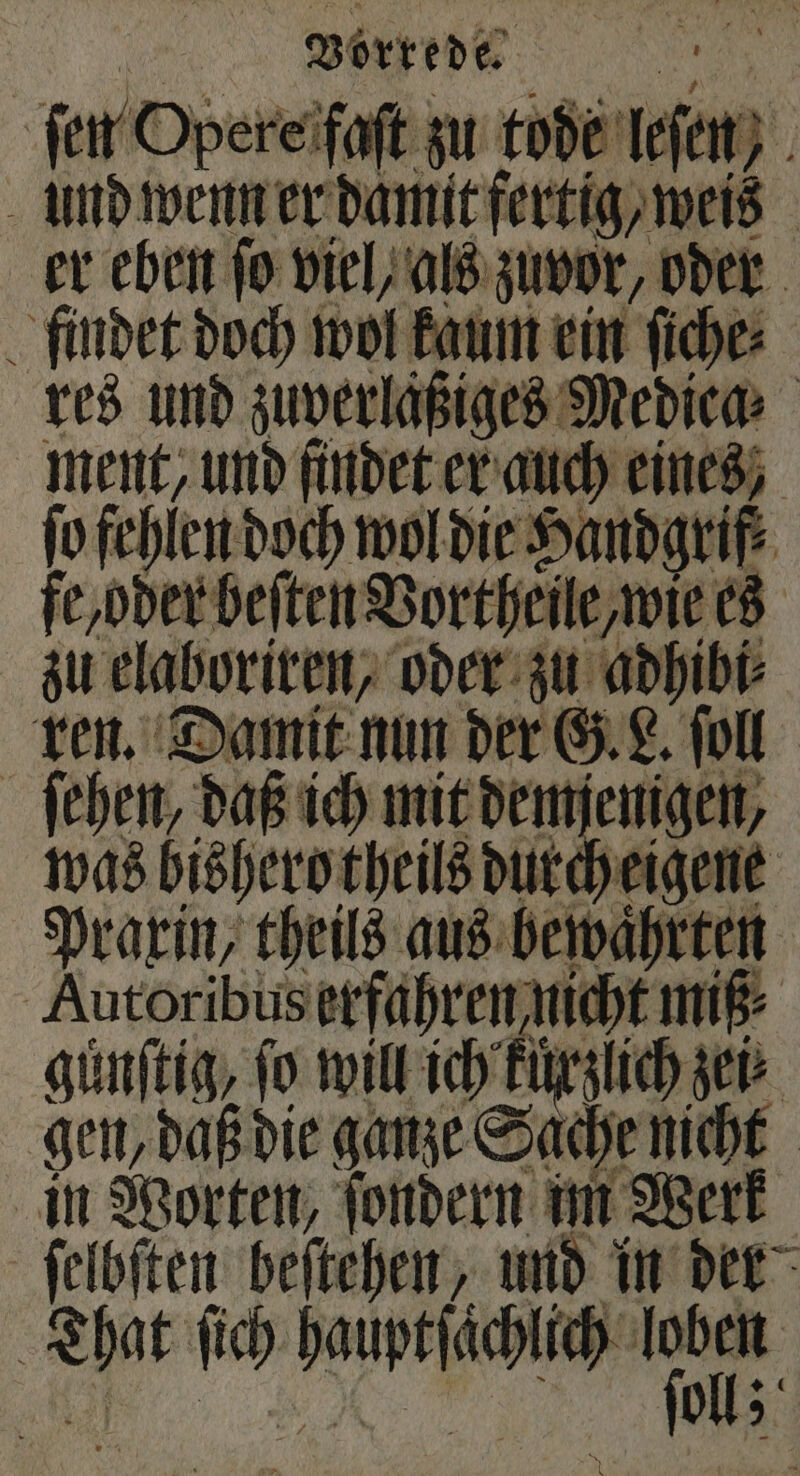 Vorrede.
ſen Opere faſt zu tode leſen,
und wenn er damit fertig, weis
er eben ſo viel, als zuvor, oder
findet doch wol kaum ein ſiche⸗
res und zuverlaͤßiges Medica⸗
ment, und findet er auch eines,
ſo fehlen doch wol die Handgrif⸗
fe, oder beſten Vortheile, wie es
zu elaboriren, oder zu adhibi⸗
ren. Damit nun der G. L. ſoll
ſehen, daß ich mit demjenigen,
was bishero theils durch eigene
Praxin, theils aus bewaͤhrten
Autoribus erfahren, nicht miß⸗
guͤnſtig, ſo will ich kuͤrzlich zei⸗
gen, daß die ganze Sache nicht
in Worten, ſondern im Werk
ſelbſten beſtehen, und in der
That ſich hauptſaͤchlich loben
ſoll;